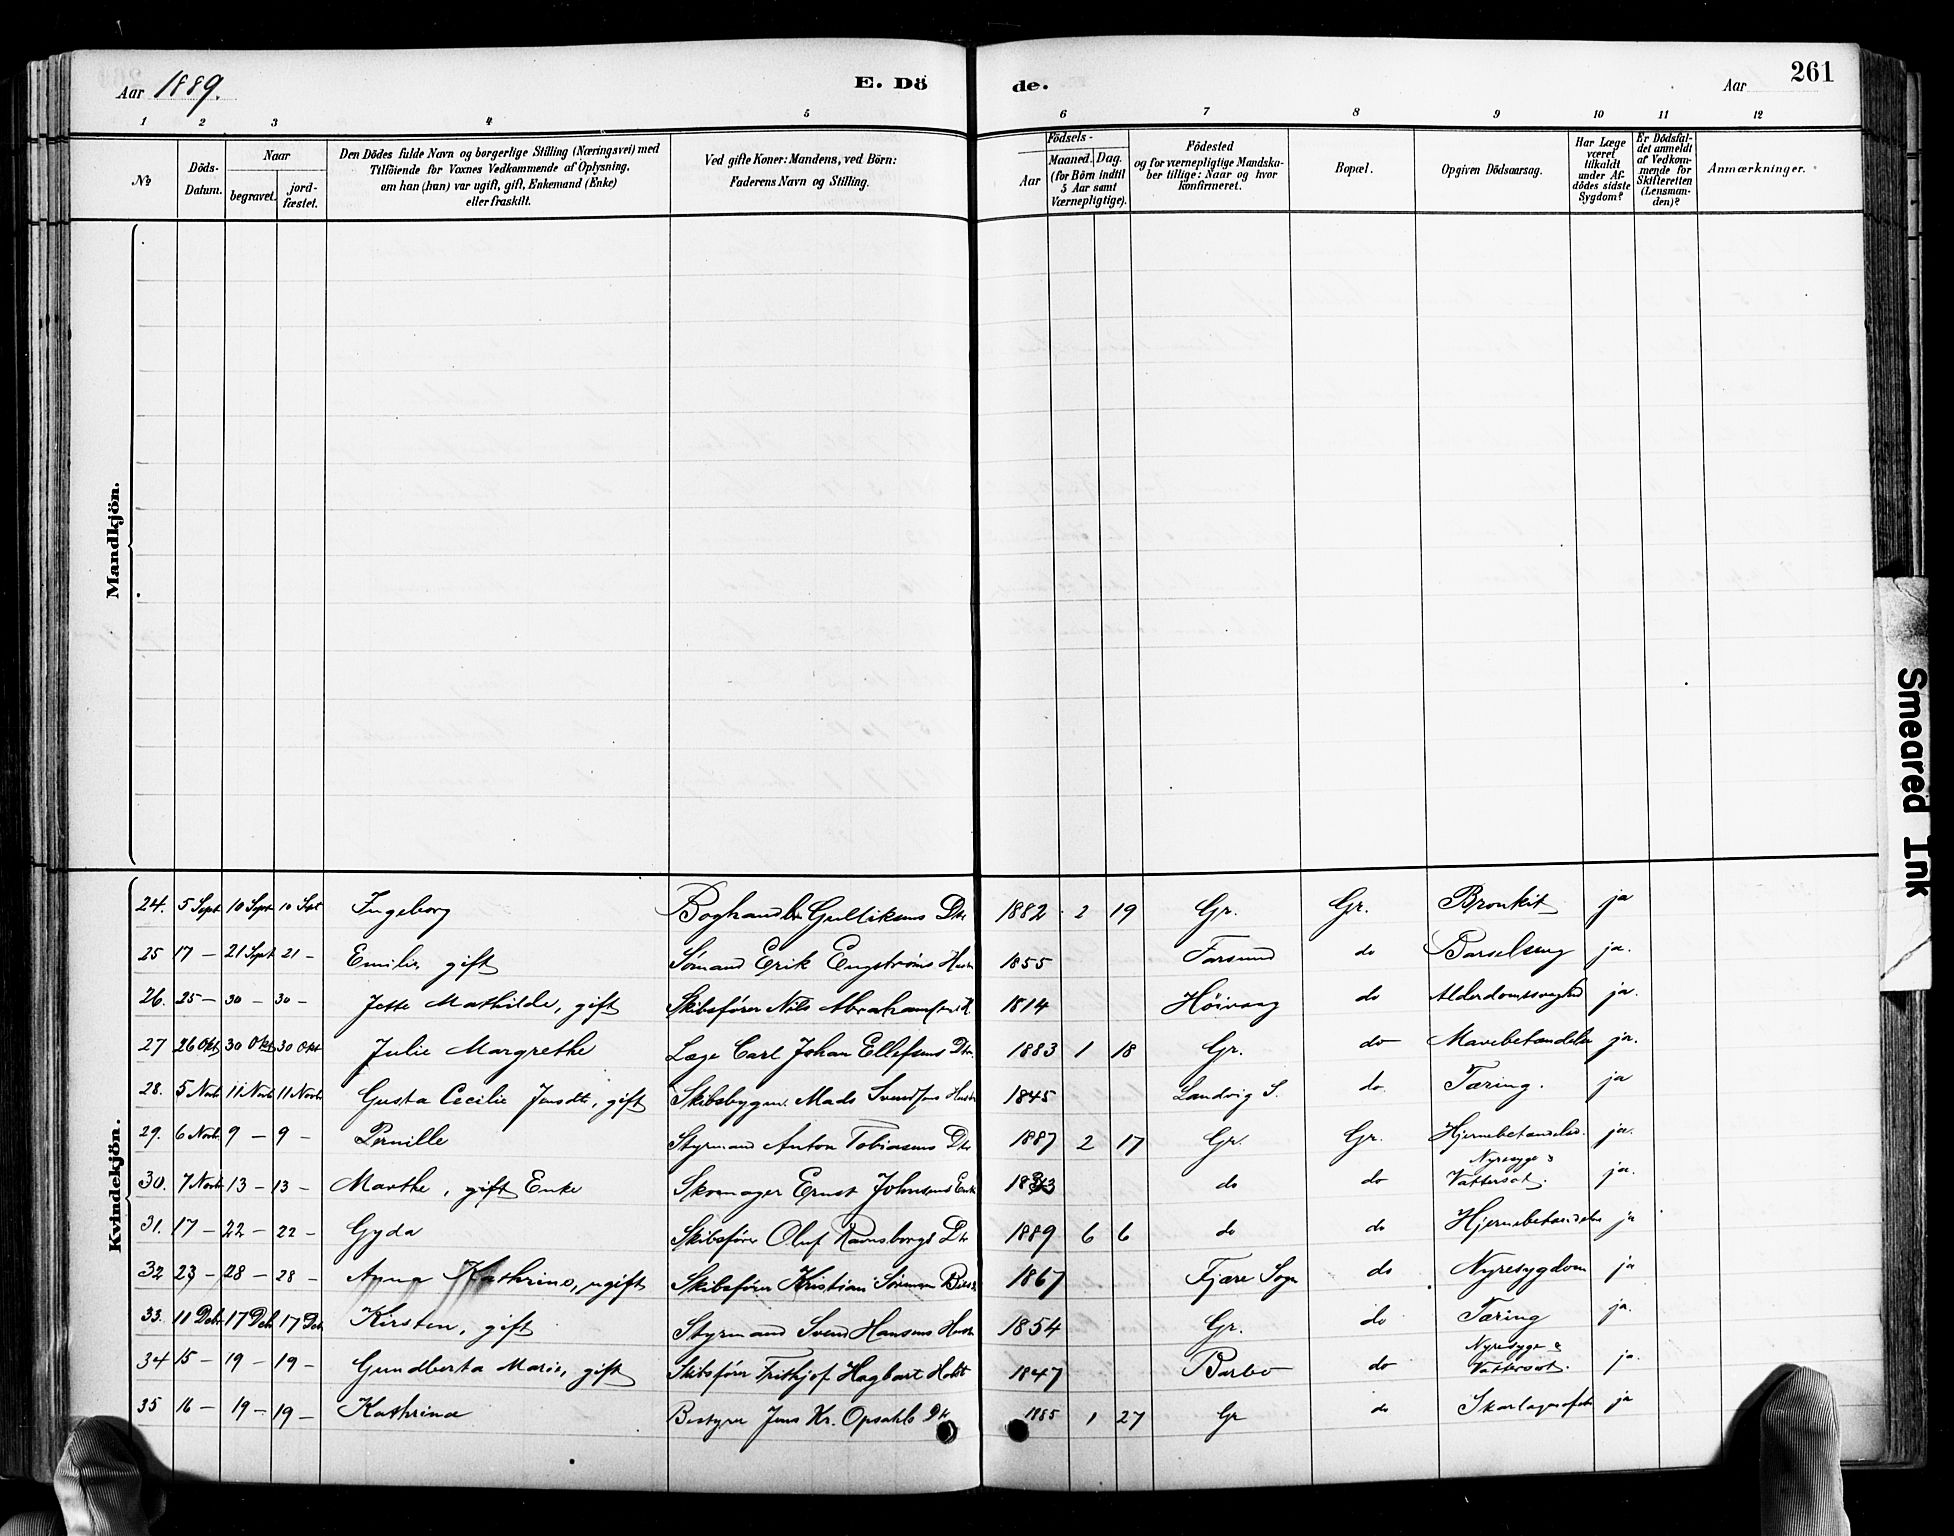 Aar 1889. E. Dö de. Aar 261
1 2 3 4 5 6 7 8 9 10 11 12
No Döds-Datum. Naar begravet. jord-fæstet. Den Dödes fulde Navn og borgerlige Stilling (Næringsvei) med Tilföiende for Voxnes Vedkommende af Oplysning, om han (hun) var ugift, gift, Enkemand (Enke) eller fraskilt. Ved gifte Koner: Mandens, ved Börn: Faderens Navn og Stilling. Födsels- Aar Maaned. Dag. (for Börn indtil 5 Aar samt Værnepligtige). Födested og for værnepligtige Mandskaber tillige: Naar og hvor konfirmeret. Bopæl. Opgiven Dödsaarsag. Har Læge været tilkaldt under Afdödes sidste Sygdom? Er Dödsfaldet anmeldt af Vedkommende for Skifteretten (Lensmanden)? Anmærkninger.
Mandkjön.
Kvindekjön.
24. 5 Sept 10 Sept 10 Sept Ingeborg Boghandler Gulliksens Dtr 1882 2 19 Gr. Gr. Bronkit ja
25 17 – 21 Sept 21 – Emilie, gift Sömand Erik Engströms Hustr 1855 Farsund do Barselseng ja.
26. 25 – 30 – 30 – Jette Mathilde, gift Skibsförer Nils Abrahamsens H. 1814 Höivaag do Alderdomssvaghed ja.
27 26 Okt 30 Okt 30 Okt Julie Margrethe Læge Carl Johan Ellefsens Dtr. 1883 1 18 Gr. do Mavebetændelse ja.
28. 5 Novb 11 Novb 11 Novb Gusta Cecilie Jensdtr, gift Skibsbygm. Mads Svendsens Hustr 1845 Landvig S. do. Tæring. ja
29. 6 Novb. 9 – 9 – Pernille Styrmand Anton Tobiasens Dtr 1887 2 17 Gr. Gr. Hjernebetændelse. ja.
30. 7 Novb 13 – 13 – Marthe, gift Enke Skomager Ernst Johnsens Enke do do Nyresyge & Vattersot. ja.
31. 17 – 22 – 22 – Gyda Skibsförer Oluf Ravnsborgs Dtr 1889 6 6 do do Hjernebetændelse ja
32 23 – 28 – 28 – Anna Kathrine, ugift Skibsförer Kristian Sörensen 1867 Fjære Sogn do Nyresygdom ja
33. 11 Debr 17 Debr 17 Debr Kirsten, gift Styrmand Svend Hansens Hustr 1854 Gr. do Tæring ja.
34 15 – 19 – 19 – Gundberta Marie, gift Skibsförer Frithjof Hagbart Holst 1847 Barbo do Nyresyge & Vattersot. ja.
35 16 – 19 – 19 – Kathrine Bestyrer Jens Kr. Opsahls Dtr 1885 1 27 Gr do Skarlagensfeber ja
Smeared Ink